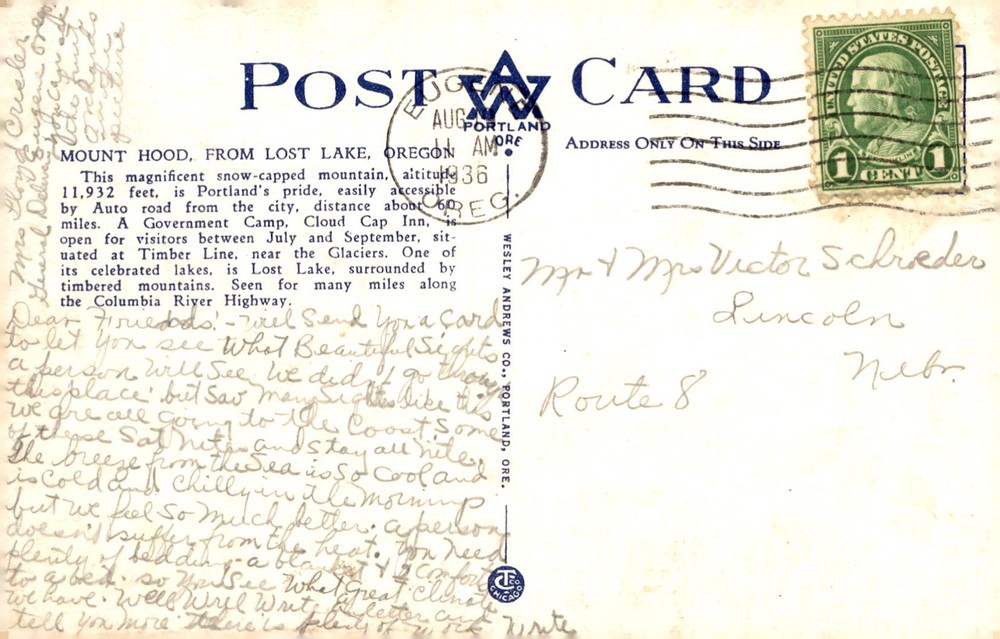 POST CARD
AW
PORTLAND
ORE
EUGENE
AUG
11 AM
1936
OREG.
UNITED STATES POSTAGE
FRANKLIN
1 CENT 1
ADDRESS ONLY ON THIS SIDE
MOUNT HOOD, FROM LOST LAKE, OREGON
This magnificent snow-capped mountain, altitude
11,932 feet, is Portland's pride, easily accessible
by Auto road from the city, distance about 60
miles. A Government Camp, Cloud Cap Inn, is
open for visitors between July and September, sit-
uated at Timber Line, near the Glaciers. One of
its celebrated lakes, is Lost Lake, surrounded by
timbered mountains. Seen for many miles along
the Columbia River Highway.
Dear Friends:- will Send You a Card
to let You see What Beautiful Sights
a person Will See, We didn't go through
this place but Saw Many Sights like this
We are all going to the Coast Some
of these Sat Nites and Stay all Nite,
the breeze from the Sea is So Cool and
is Cold and Chilly in the Mornings
but we feel So Much better. a person
doesn't suffer from the heat. You Need
plenty of bedding a blanket & 2 Comforts
to a bed. so You See What a great Climate
We have. Well Will Write a letter and
tell You More there is plenty of Write
Mrs
General Delivery
Eugene Oreg.
WESLEY ANDREWS CO., PORTLAND, ORE.
CHICAGO
Mr & Mrs Victor Schroeder
Lincoln
Nebr.
Route 8